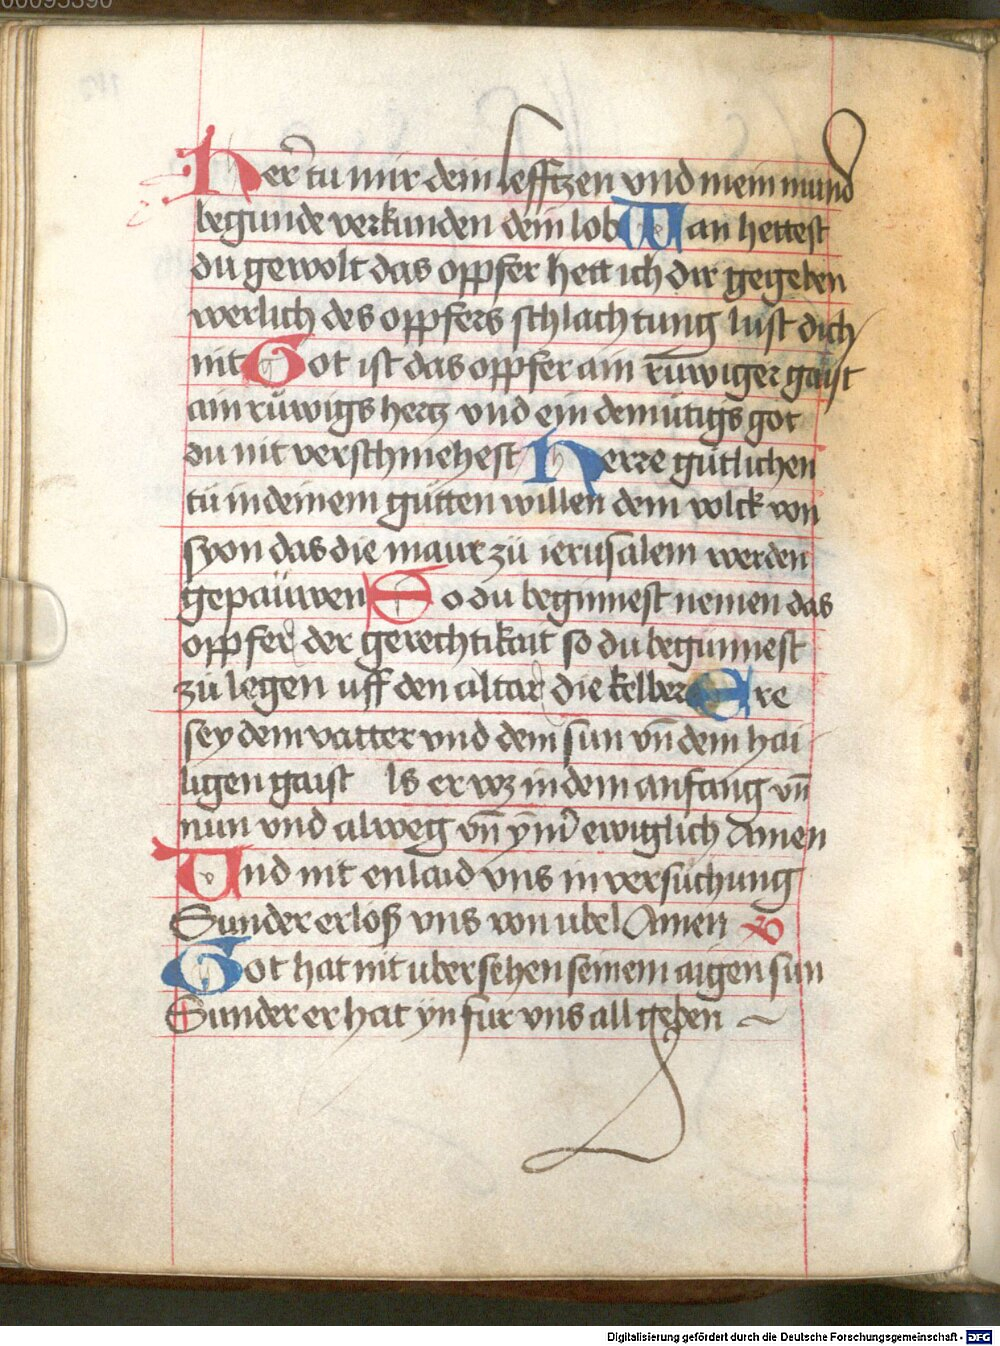 00095390
Her̄ tu mir dein lefftzen vnd mein mund
begunde verkunden dein lob Wan hettest
du gewolt das opffer hett ich dir gegeben
werlich des opffers schlachtung lust dich
nit Got ist das opffer ain rüwiger gaist
ain rüwigs hertz vnd ein demütigs got
du nit verschmehest Herre gütlichen
tü in deinem gütten willen dem volck von
syon das die maur zü ierusalem werden
gepaüwen So du beginnest nemen das
opffer der gerechtikait so du begunnest
zü legen uff den altar die kelber Ere
sey dem vatter vnd dem sun vn̄ dem hai
ligen gaist ls er wz in dem anfang vn̄
nun vnd alweg vn̄ ym̄ ewiglich Amen
Vnd nit enlaid vns in versüchung
Sunder erlöß vns von ubel Amen
Got hat nit ubersehen seinem aigen sun
Sunder er hat yn für vns all geben
Digitalisierung gefördert durch die Deutsche Forschungsgemeinschaft - DFG